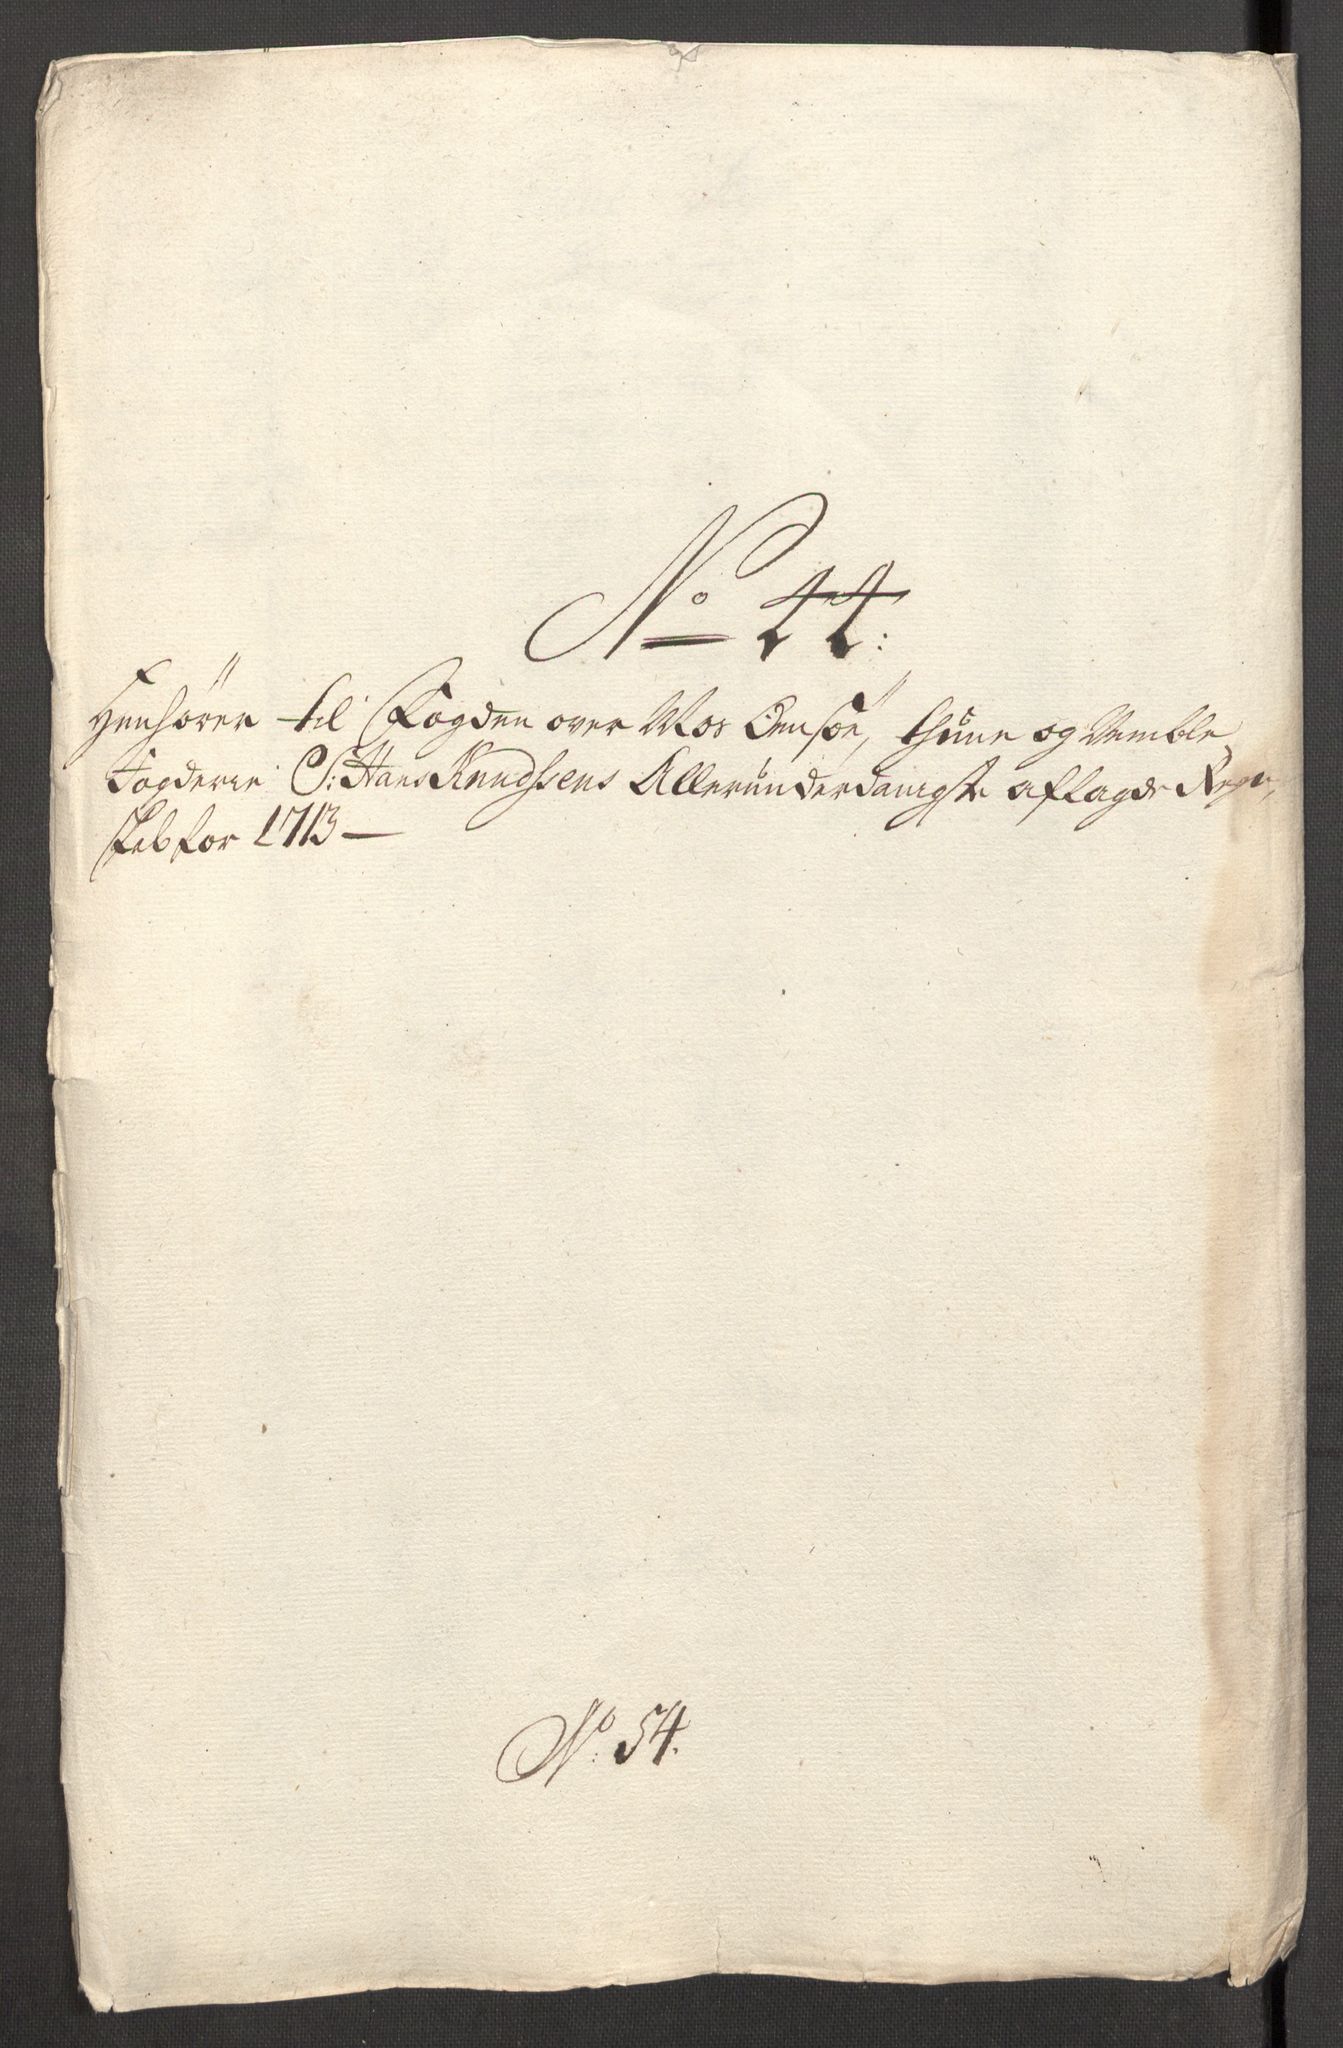 No 44:
Henhører til Fogden over Mos Onsøe, thune og Vemble
Fogderie S: Hans Knudssens Allerunderdanigste aflagde Regn,
skab for 1713 —
No. 54.